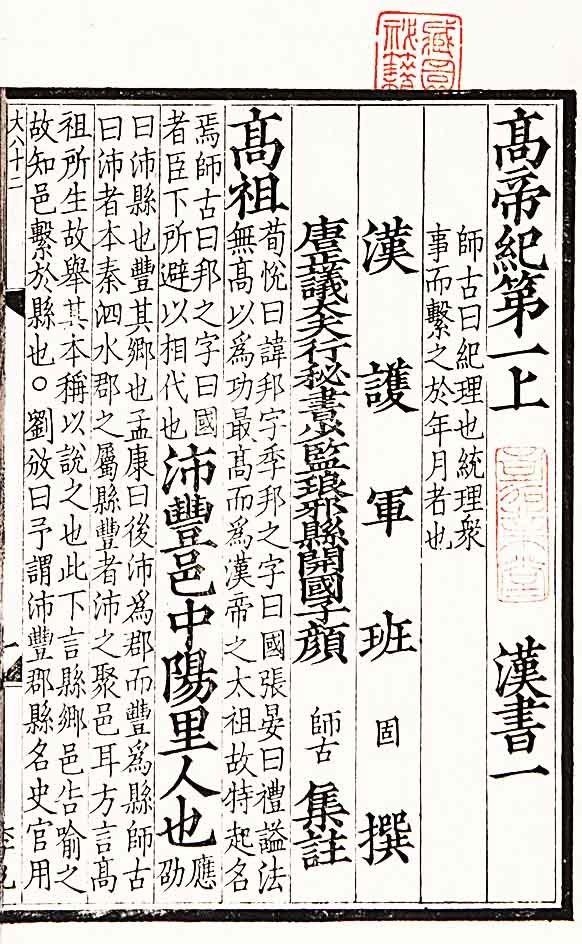 藏園
秘籍
高帝紀第一上　漢書一
師古曰紀理也統理衆
事而繫之於年月者也
漢護軍班固撰
唐正議大夫行秘書少監琅邪縣開國子顏師古集註
髙祖
荀悅曰諱邦字季邦之字曰國張晏曰禮謚法
無髙以爲功最髙而爲漢帝之太祖故特起名
焉師古曰邦之字曰國
者臣下所避以相代也
沛豐邑中陽里人也
應
劭
曰沛縣也豐其鄉也孟康曰後沛爲郡而豐爲縣師古
曰沛者本秦泗水郡之屬縣豐者沛之聚邑耳方言髙
祖所生故舉其本稱以說之也此下言縣鄉邑告喻之
故知邑繫於縣也○劉攽曰予謂沛豐郡縣名史官用
大八十二